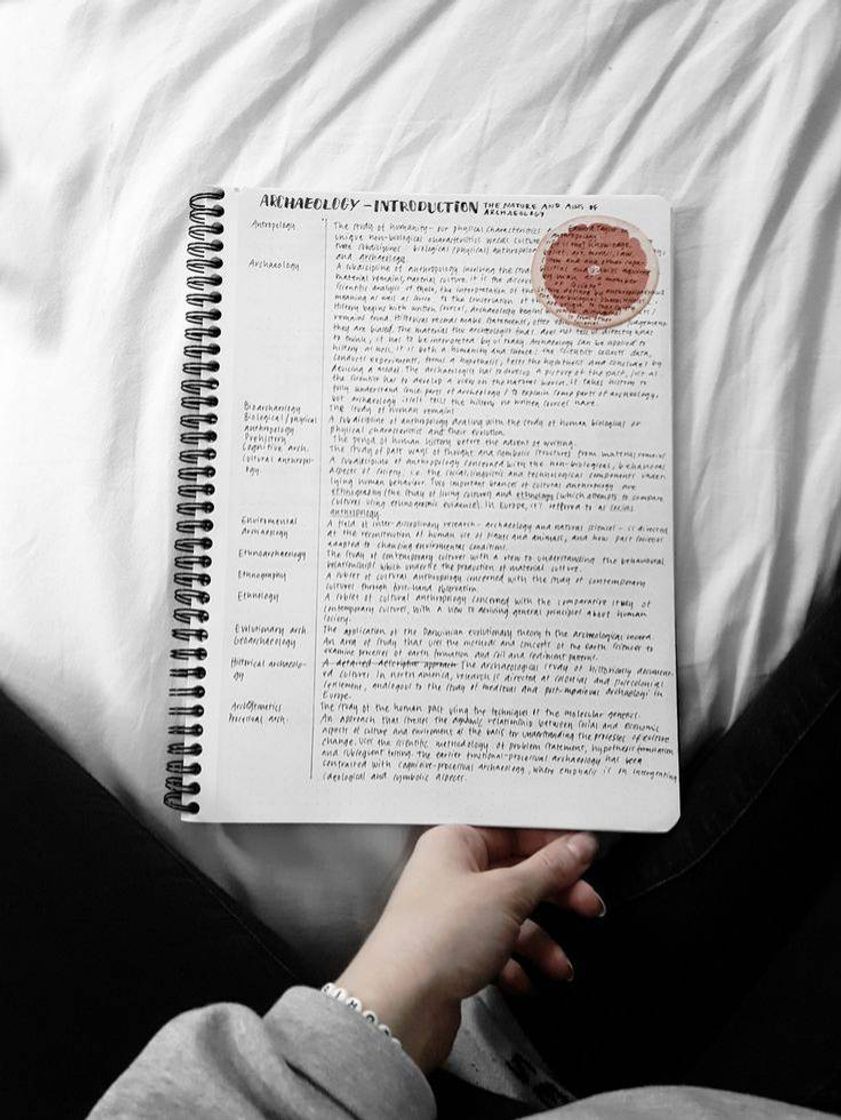 ARCHAEOLOGY - INTRODUCTION THE NATURE AND AIMS OF
ARCHAEOLOGY
Antropology The study of humanity - our physical characteristics
unique non-biological characteristics
three subdisciplines: biological (physical) anthropology
and archaeology.
Archaeology A subdiscipline of anthropology involving the
material remains, material culture. it is the
scientific analysis of these, the interpretation of
meaning as well as
History begins with written sources, archaeology begins
remains found. Historical records make statements, offer
they are biased. The material the archaeologist finds does not tell us directly what
to think, it has to be interpreted by us today. Archaeology can be applied to
history as well. it is both a humanity and science: the scientist collects data,
conducts experiments, forms a hypothesis, tests the hypothesis and concludes by
devising a model. The archaeologist has to develop a picture of the past, just as
the scientist has to develop a view on the natural world. it takes history to
fully understand some parts of archaeology / to explain some parts of archaeology,
but archaeology itself tells the history no written sources have.
Bioarchaeology The study of human remains
Biological/physical A subdiscipline of anthropology dealing with the study of human biological or
anthropology physical characteristics and their evolution.
Prehistory The period of human history before the advent of writing.
Cognitive arch. The study of past ways of thought and symbolic structures from material remains
Cultural anthropo- A subdiscipline of anthropology concerned with the non-biological, behavioral
logy. aspects of society, i.e. the social, linguistic and technological components under-
lying human behaviour. Two important branches of cultural anthropology are
ethnography (the study of living cultures) and ethnology (which attempts to compare
cultures using ethnographic evidence). In Europe, it's referred to as social
anthropology.
Enviromental A field of inter-disciplinary research - archaeology and natural sciences - is directed
archaeology at the reconstruction of human use of plants and animals, and how past societies
adapted to changing enviromental conditions.
Ethnoarchaeology The study of contemporary cultures with a view to understanding the behavioural
relationships which underlie the production of material culture.
Ethnography A subset of cultural anthropology concerned with the study of contemporary
cultures through first-hand observation.
Ethnology A subset of cultural anthropology concerned with the comparative study of
contemporary cultures, with a view to deriving general principles about human
society.
Evolutionary arch. The application of the Darwinian evolutionary theory to the archeological record.
Geoarchaeology An area of study that uses the methods and concepts of the earth sciences to
examine processes of earth formation and soil and sediment patterns.
Historical archaeolo- A detailed descriptive approach The archaeological study of historically document-
gy ed cultures. In north America, research is directed at colonial and postcolonial
settlement, analogous to the study of medieval and post-medieval archaeology in
Europe.
Archogenetics The study of the human past using the techniques of the molecular genetics.
Processual arch. An approach that stresses the dynamic relationship between social and economic
aspects of culture and enviroment as the basis for understanding the processes of culture
change. Uses the scientific methodology of problem statement, hypothesis formation
and subsequent testing. The earlier functional-processual archaeology has been
contrasted with cognitive-processual archaeology, where emphasis is on intergrating
ideological and symbolic aspects.